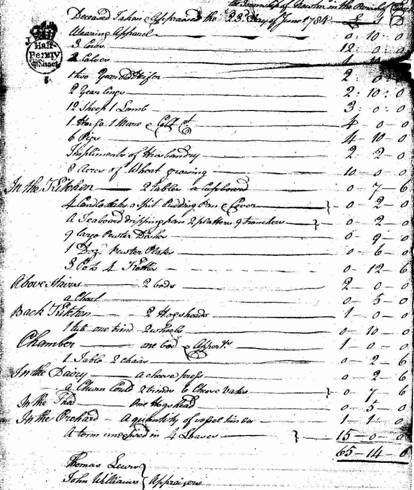 the Township of in the Parish of
Deceased Taken & Appraised the 22 Day of June 1784 £ S D
Half
Penny
Sheet
Wearing Apparel 0-10-0
3 Cows 12-0-0
2 Calves
two Year old 2-0-0
2 Year 2-10-0
12 Sheep 1 Lamb 3-0-0
1 Horse 1 Mare & Colt 4-0-0
6 Pigs 4-10-0
Impliments of Husbandry 2-2-0
8 Acres of Wheat growing 10-0-0
In the Kitchen 2 Tables a Cupboard 0-7-6
4 Candlesticks a Spit Pudding Pan & Cover 0-2-0
a dripping pan 2 platters 9 trenchers 0-2-0
9 large Pewter Dishes 0-9-0
1 Doz Pewter Plates 0-6-0
3 4 Kettles 0-12-6
Above Stairs 2 beds 2-0-0
a Chest 0-5-0
Back Kitchen 2 Hogsheads 1-0-0
1 tub one 2 0-10-0
Chamber one bed & 1-0-0
1 Table 2 chairs 0-2-6
In the Dairy a cheese press 0-2-6
a Churn 2 & Cheese Vates 0-1-6
In the one hogshead 0-5-0
In the Orchard a quantity of timber 1-1-0
a term unexpired in 4 Leases 15-0-0
65-14-6
Thomas Lewis
John Williams } Appraizors